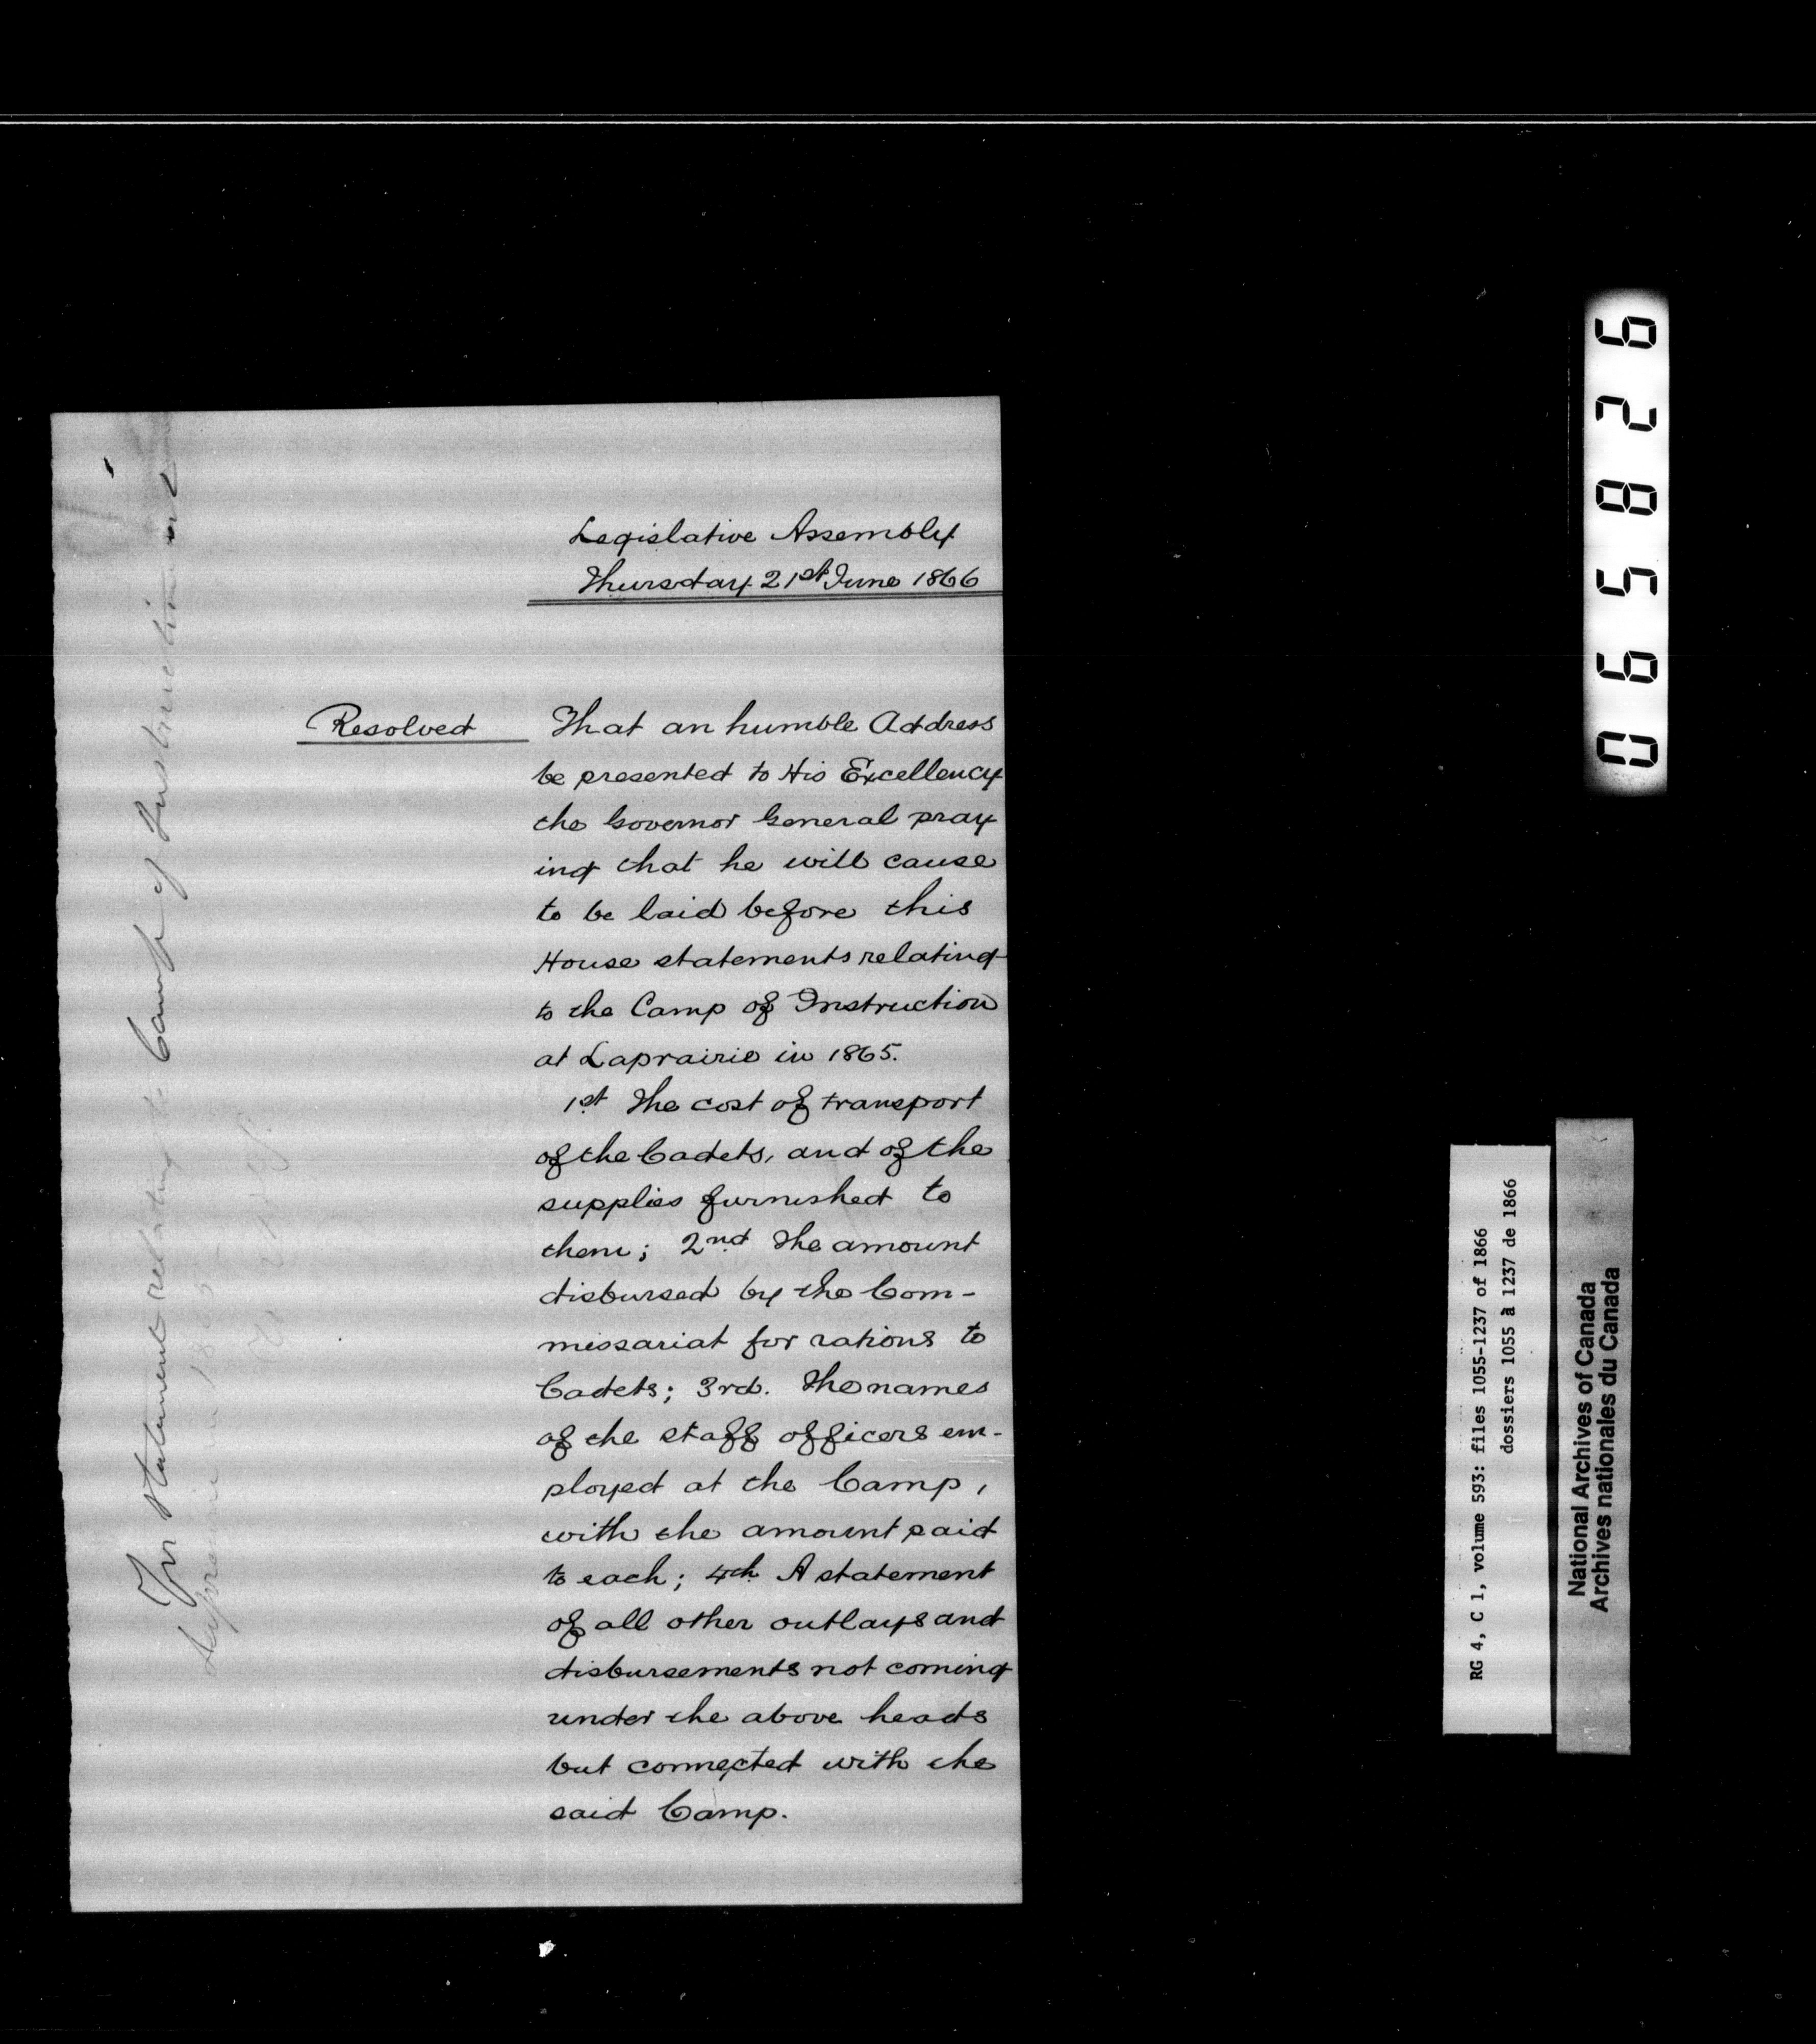 Legislative Assembly
Thursday 21st June 1866
Resolved That an humble Address
be presented to His Excellency
the Governor General pray
ing that he will cause
to be laid before this
House statements relating
to the Camp of Instruction
at Laprairie in 1865.
1st The cost of transport
of the Cadets, and of the
supplies furnished to
them; 2nd The amount
disbursed by the Com-
missariat for rations to
Cadets; 3rd. The names
of the staff officers em-
ployed at the Camp,
with the amount paid
to each; 4th A statement
of all other outlays and
disbursements not coming
under the above heads
but connected with the
said Camp.
For statement relating to Camp of Instruction
Laprairie in 1865
065826
RG 4, C 1, volume 593: files 1055-1237 of 1866
dossiers 1055 à 1237 de 1866
National Archives of Canada
Archives nationales du Canada